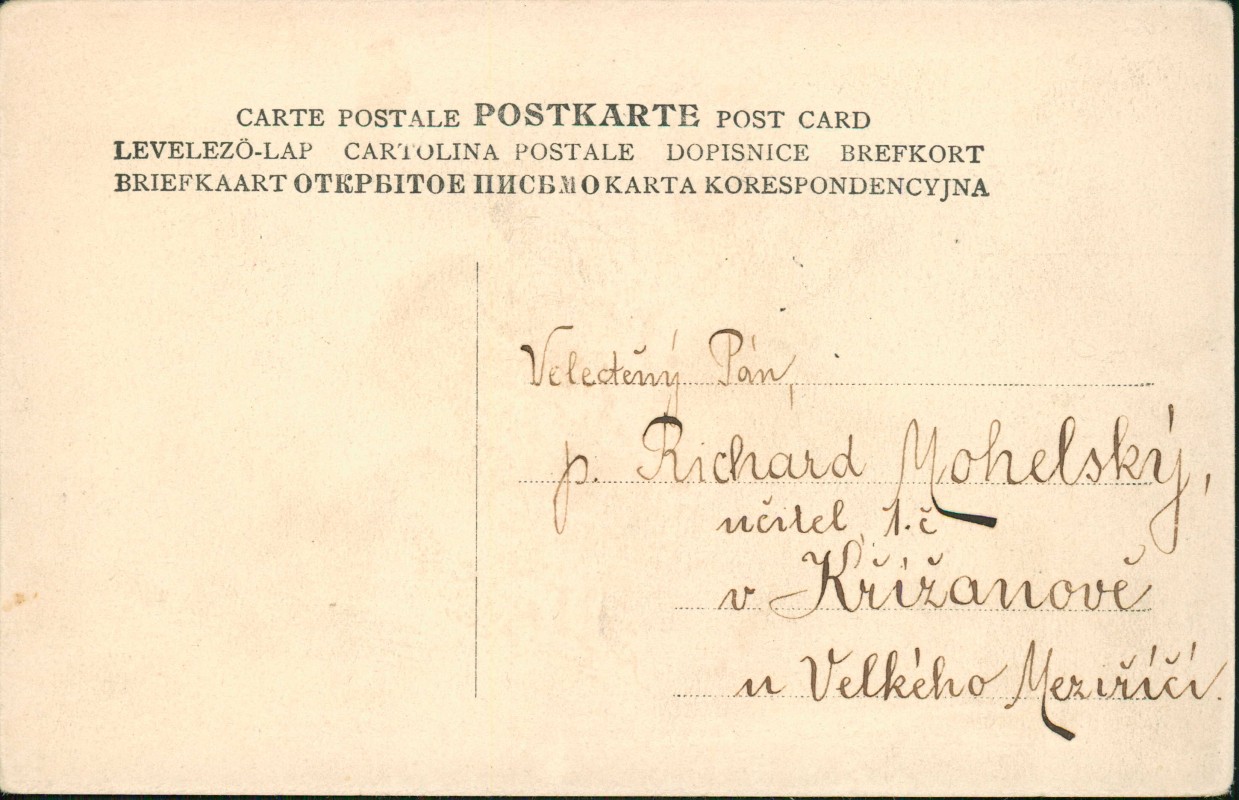 CARTE POSTALE POSTKARTE POST CARD
LEVELEZÖ-LAP CARTOLINA POSTALE DOPISNICE BREFKORT
BRIEFKAART ОТКРЫТОЕ ПИСЬМО KARTA KORESPONDENCYJNA
Velectěný Pán,
p. Richard Mohelský,
učitel, 1. č
v Křížanově
u Velkého Meziříčí.